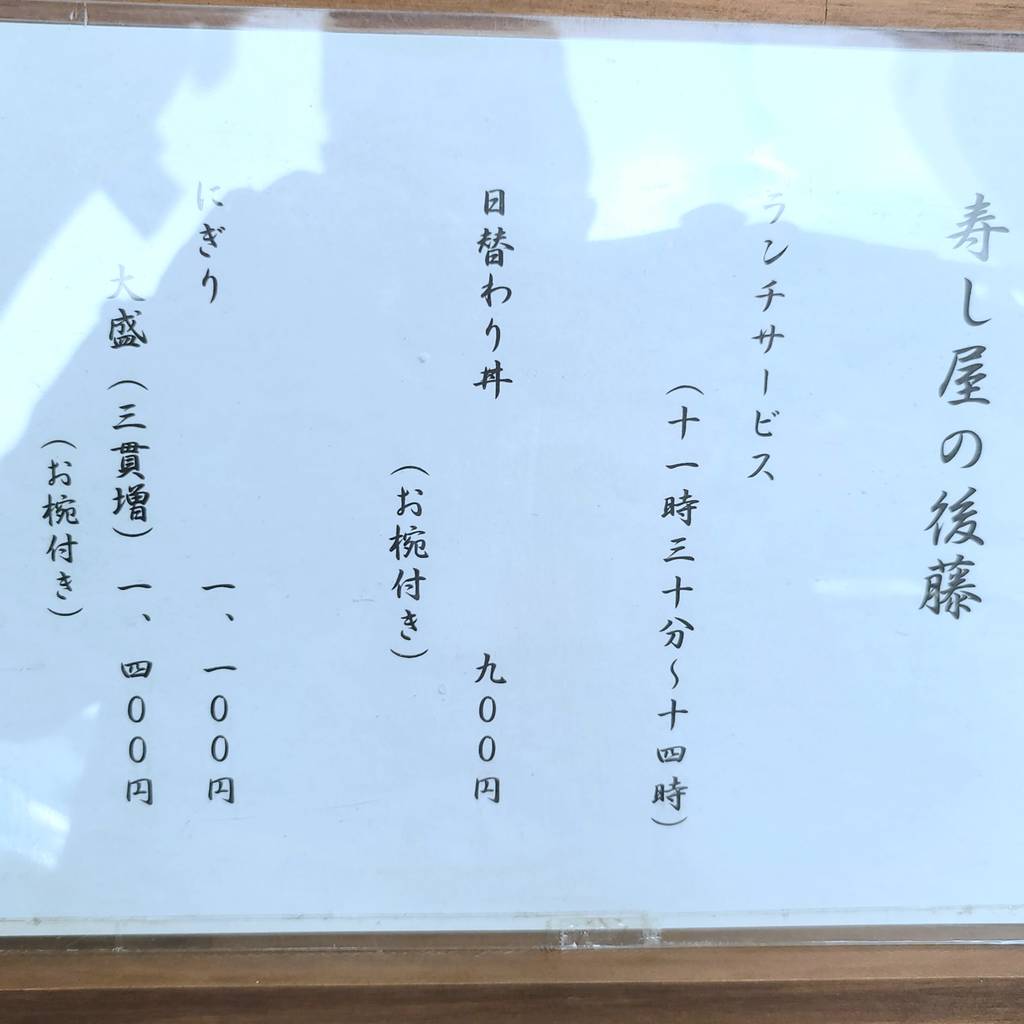 寿し屋の後藤
ランチサービス
(十一時三十分～十四時)
日替わり丼 九００円
(お椀付き)
にぎり 一、一００円
大盛(三貫増) 一、四００円
(お椀付き)